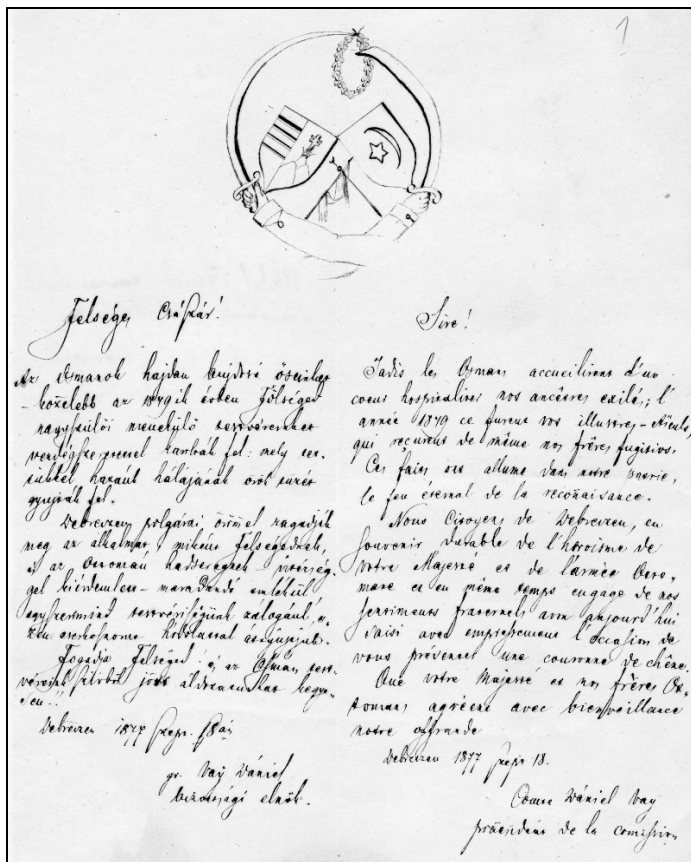 1
Felséges Császár!
Az Osmanok hajdan bujdosó őseinket
– közelebb az 1849ik évben Fölséged
nagyszülői menekülő testvéreinket
vendégszeretettel karolták fel: mely
hazánk hálájának örök tüzét
gyujták fel.
Debreczen polgárai örömmel ragadják
meg az alkalmat, miként Felségednek,
s az Ottoman hadseregnek
kiérdemlett – maradandó emlékül,
egyszersmind testvériségünk zálogául e
Fogadja Felséged! s az Osmán test-
jött áldozatunkat kegye-
sen!!
Debreczen 1877 Sept. 18án
gr. Vay Dániel
bizottsági elnök.
Sire!
Jadis les Osmans accueilirent d'un
coeur hospitalier nos ancêtres exilés; l'
année 1849 ce furent vos illustres-Aieuls,
qui reçurent de même nos frères fugitivs.
Ces faits ont allumé dans notre patrie,
le feu éternal de la reconaisance.
Nous Citoyens de Debreczen, en
souvenir durable de l'héroisme de
votre Majesté et de l'armée Otto-
mane et en même temps en gage de nos
sentiments fraternels avon aujourd'hui
saisi avec empressement l'occasion de
vous présenter une couronne de chêne.
Que votre Majesté et nos frères Ot-
tomans agréent avec bienveillance
notre offrande
Debreczen 1877 Sept 18.
Comte Dániel Vay
président de la comission